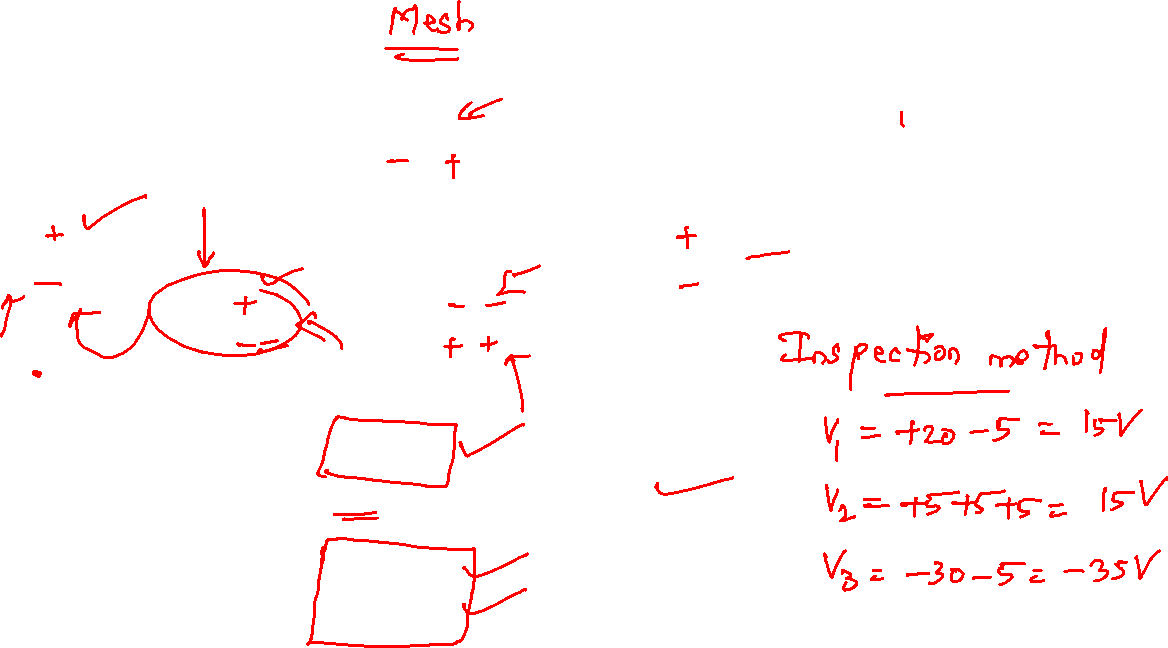 Mesh
- +
+
-
+
- -
+
-
-
+ -
- -
+ +
Inspection method
V₁ = +20 - 5 = 15V
V₂ = +5+5+5 = 15V
V₃ = -30 - 5 = -35V